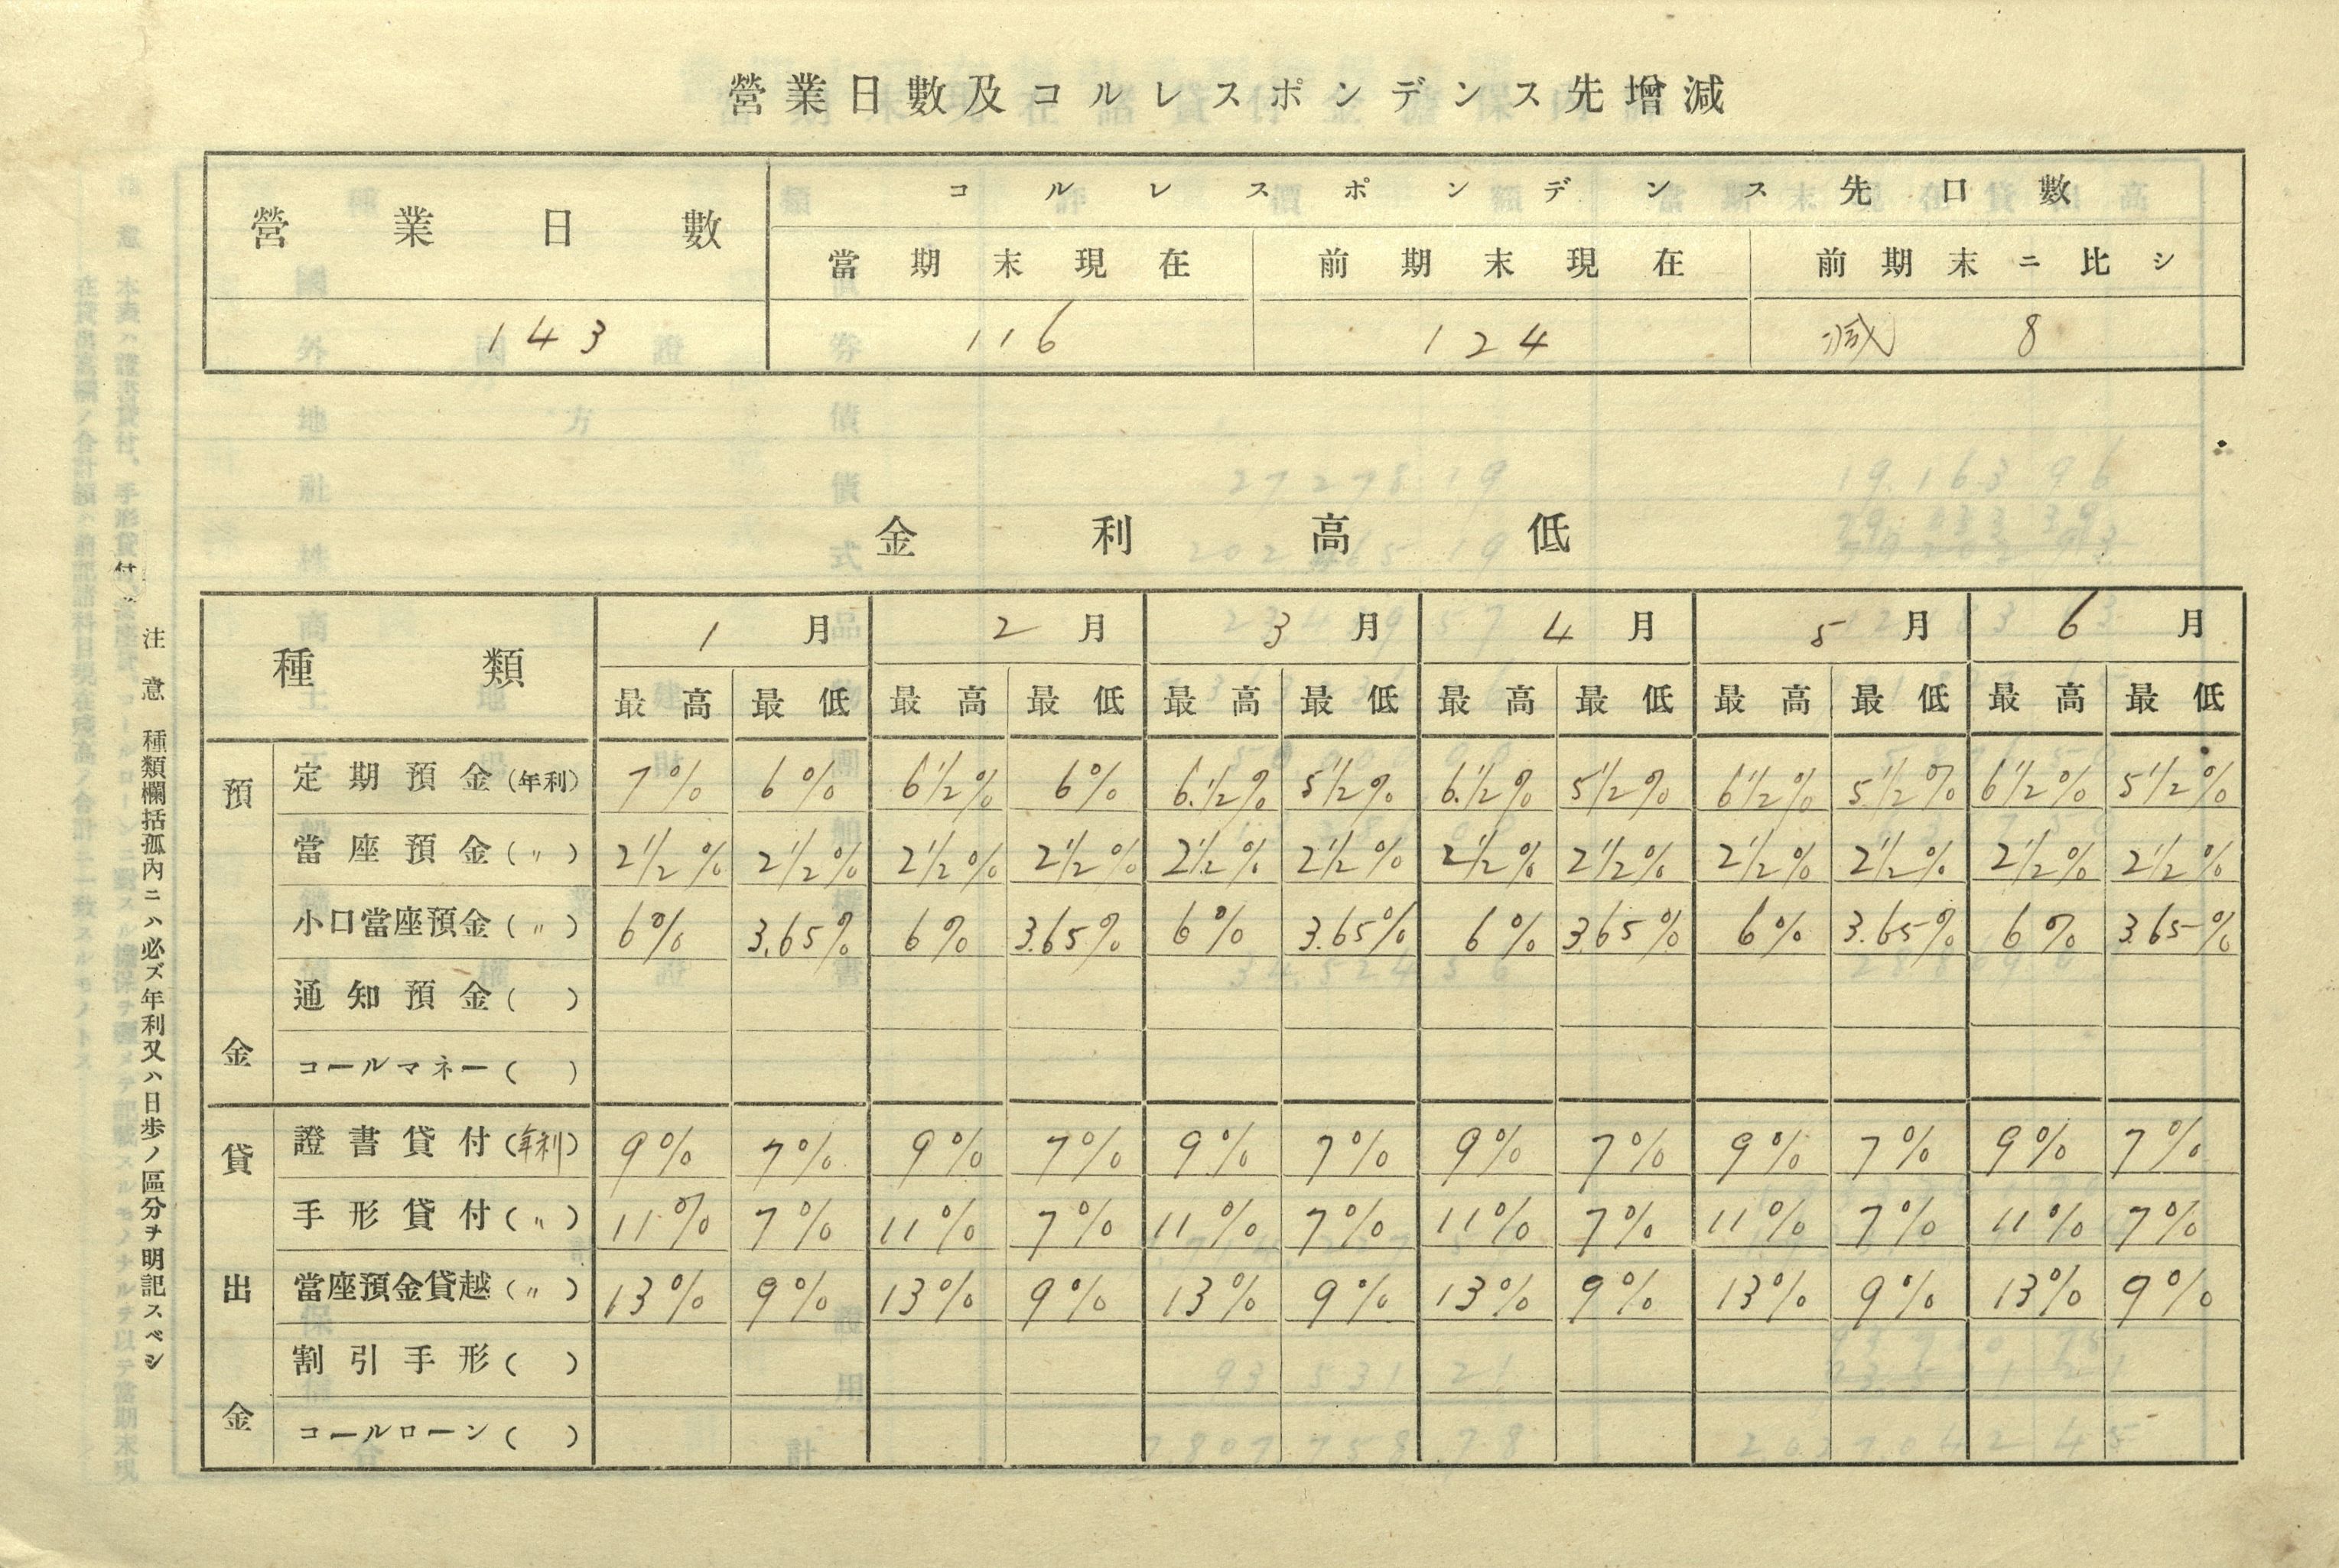 營業日數及コルレスポンデンス先增減
營業日數 コルレスポンデンス先口數
當期末現在 前期末現在 前期末ニ比シ
143 116 124 減 8
金利高低
種類 1月 2月 3月 4月 5月 6月
最高 最低 最高 最低 最高 最低 最高 最低 最高 最低 最高 最低
預金
定期預金(年利) 7% 6% 6 1/2% 6% 6 1/2% 5 1/2% 6 1/2% 5 1/2% 6 1/2% 5 1/2% 6 1/2% 5 1/2%
當座預金(〃) 2 1/2% 2 1/2% 2 1/2% 2 1/2% 2 1/2% 2 1/2% 2 1/2% 2 1/2% 2 1/2% 2 1/2% 2 1/2% 2 1/2%
小口當座預金(〃) 6% 3.65% 6% 3.65% 6% 3.65% 6% 3.65% 6% 3.65% 6% 3.65%
通知預金( )
コールマネー( )
貸出金
證書貸付(年利) 9% 7% 9% 7% 9% 7% 9% 7% 9% 7% 9% 7%
手形貸付(〃) 11% 7% 11% 7% 11% 7% 11% 7% 11% 7% 11% 7%
當座預金貸越(〃) 13% 9% 13% 9% 13% 9% 13% 9% 13% 9% 13% 9%
割引手形( )
コールローン( )
注意 種類欄括孤內ニハ必ズ年利又ハ日步ノ區分ヲ明記スベシ